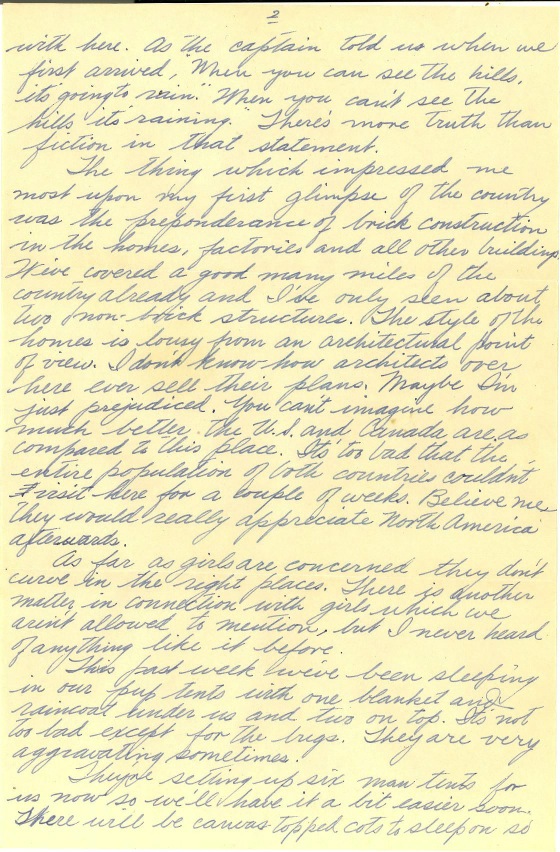 2
with here. As the captain told us when we
first arrived, "When you can see the hills,
its going to rain." When you can't see the
hills its raining." There's more truth than
fiction in that statement.
The thing which impressed me
most upon my first glimpse of the country
was the preponderance of brick construction
in the homes, factories and all other buildings.
We've covered a good many miles of the
country already and I've only seen about
two non-brick structures. The style of the
homes is lousy from an architectural point
of view. I don't know how architects over
here ever sell their plans. Maybe I'm
just prejudiced. You can't imagine how
much better the U.S. and Canada are as
compared to this place. Its too bad that the
entire population of both countries couldn't
visit here for a couple of weeks. Believe me
they would really appreciate North America
afterwards.
As far as girls are concerned they don't
curve in the right places. There is another
matter in connection with girls which we
aren't allowed to mention, but I never heard
of anything like it before.
This past week we've been sleeping
in our pup tents with one blanket and
raincoat under us and two on top. Its not
too bad except for the bugs. They are very
aggravating sometimes.
They're setting up six man tents for
us now so we'll have it a bit easier soon.
There will be canvas topped cots to sleep on so